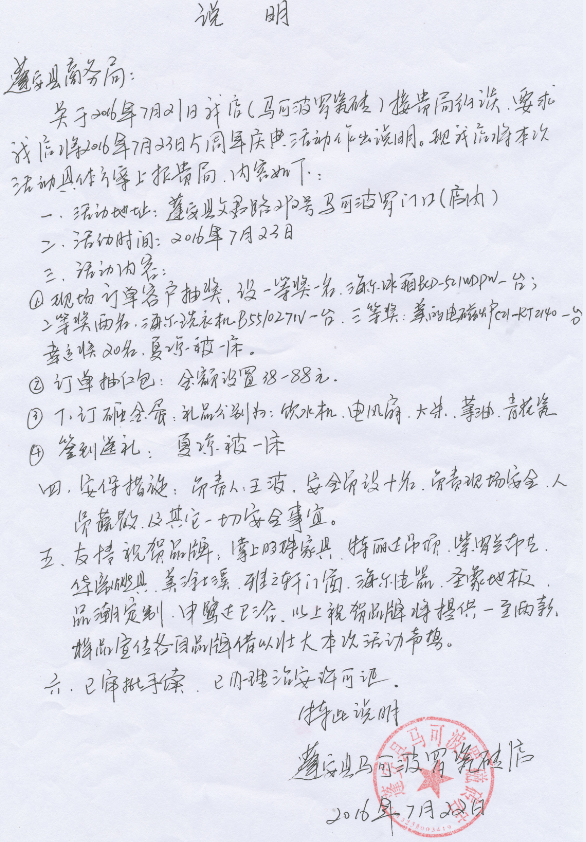 说 明
蓬安县商务局：
关于2016年7月21日我店（马可波罗瓷砖）接贵局约谈，要求
我店将2016年7月23日6周年庆典活动作出说明。现我店将本次
活动具体方案上报贵局，内容如下：
一、活动地址：蓬安县文君路212号马可波罗门口（店内）
二、活动时间：2016年7月23日
三、活动内容：
①现场订单客户抽奖，设一等奖一名，海尔冰箱BCD-521WDPW一台；
二等奖两名，海尔洗衣机B55102711V一台，三等奖：美的电磁炉C21-KT2140一台
幸运奖20名，夏凉被一床。
②订单抽红包：金额设置38-88元.
③下订砸金蛋，礼品分别为：饮水机、电风扇、大米、菜油、青花瓷
④签到送礼：夏凉被一床
四、安保措施：负责人王波，安全员设十名，负责现场安全、人
员疏散及其它一切安全事宜。
五、友情祝贺品牌：掌上明珠家具、特丽达吊顶、紫罗兰布艺、
华帝厨具、芙洁漆、雅之轩门窗、海尔电器、圣象地板、
品潮定制、申鹭达卫浴，以上祝贺品牌将提供一至两款
样品宣传各自品牌借以壮大本次活动声势。
六、已审批手续，已办理治安许可证.
特此说明
蓬安县马可波罗瓷砖店
2016年7月22日